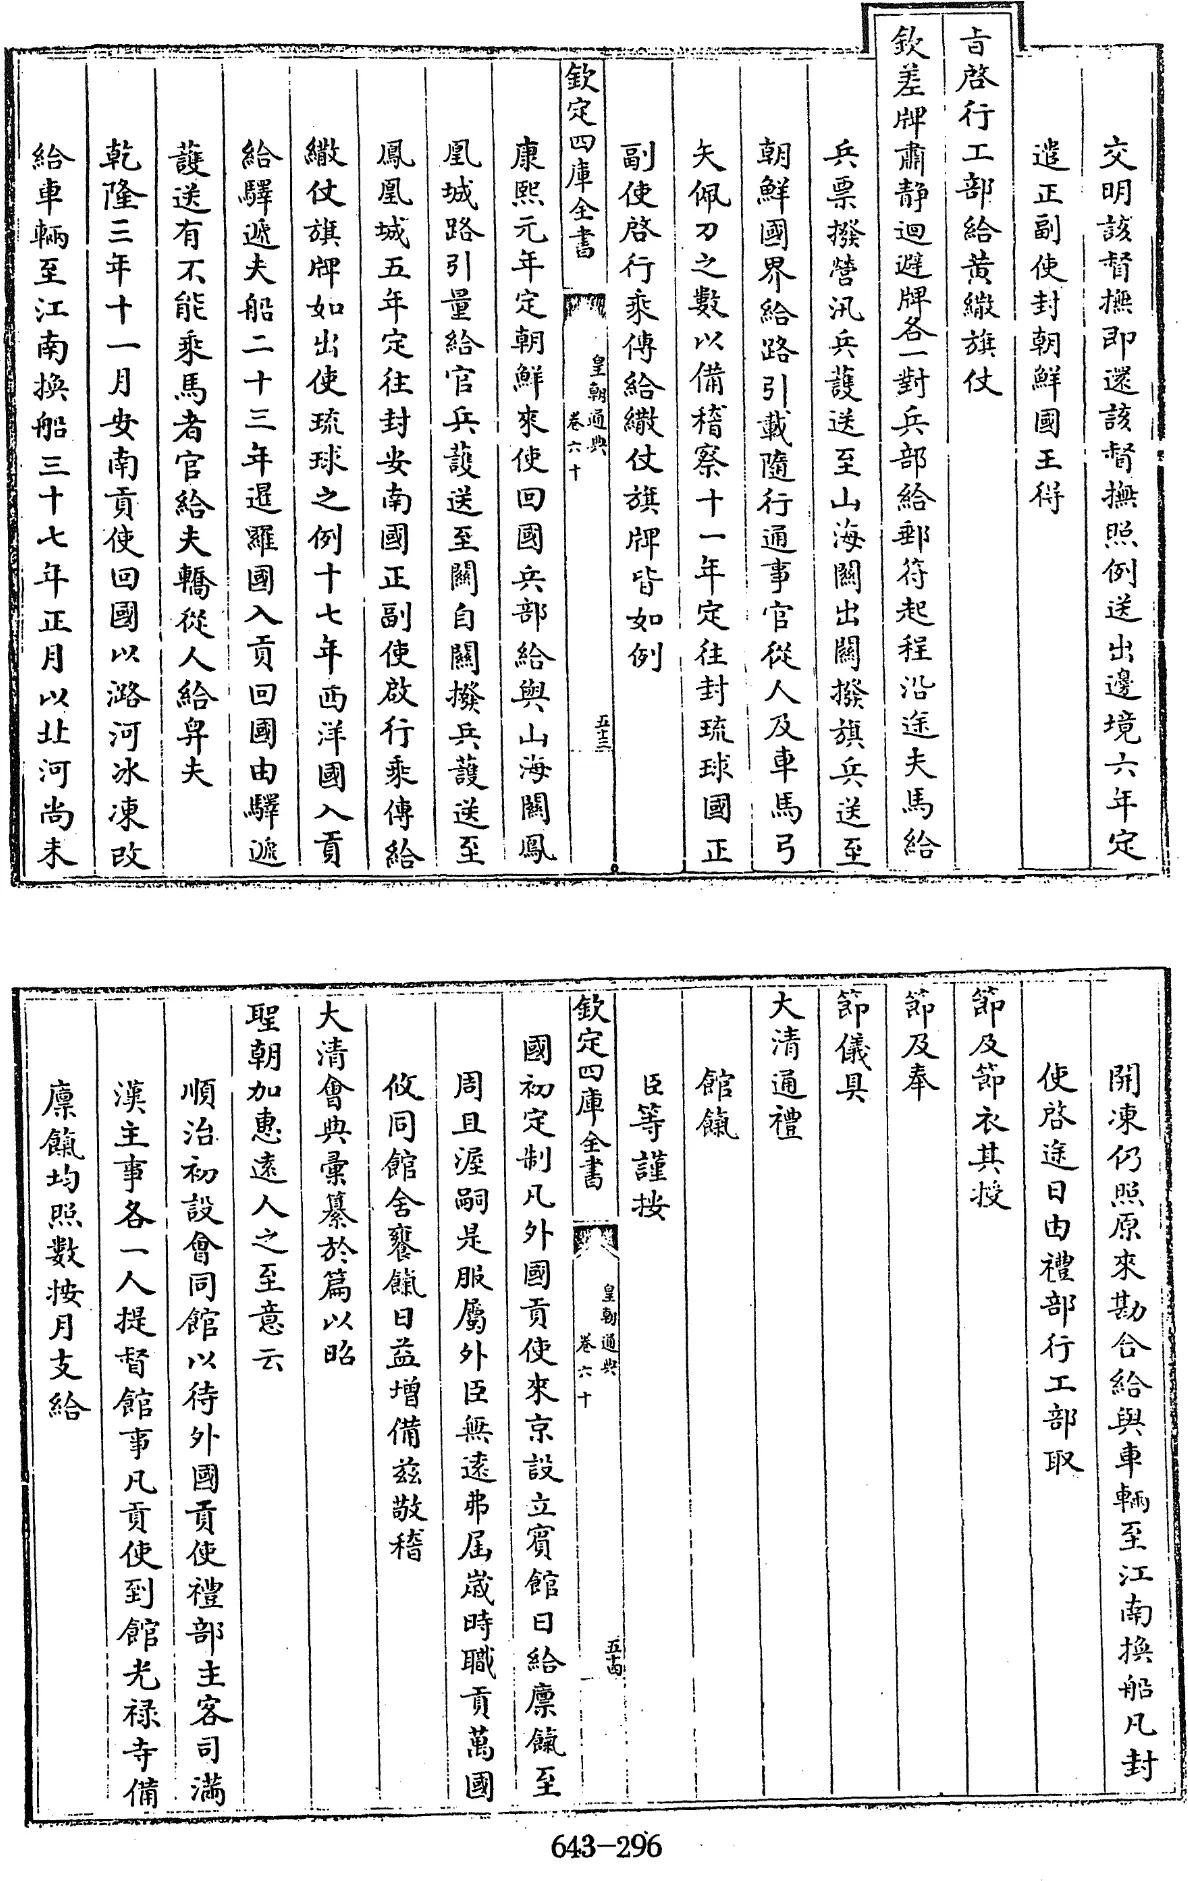 交明該督撫即還該督撫照例送出邊境六年定
遣正副使封朝鮮國王得
旨啓行工部給黃繖旗仗
欽差牌肅靜迴避牌各一對兵部給郵符起程沿途夫馬給
兵票撥營汛兵護送至山海關出關撥旗兵送至
朝鮮國界給路引載隨行通事官從人及車馬弓
矢佩刀之數以備稽察十一年定往封琉球國正
副使啓行乘傳給繖仗旗牌皆如例
欽定四庫全書
皇朝通典
卷六十
五十三
康熙元年定朝鮮來使回國兵部給與山海關鳳
凰城路引量給官兵護送至關自關撥兵護送至
鳳凰城五年定往封安南國正副使啟行乘傳給
繖仗旗牌如出使琉球之例十七年西洋國入貢
給驛遞夫船二十三年暹羅國入貢回國由驛遞
護送有不能乘馬者官給夫轎從人給舁夫
乾隆三年十一月安南貢使回國以潞河冰凍改
給車輛至江南換船三十七年正月以北河尚未
開凍仍照原來勘合給與車輛至江南換船凡封
使啓途日由禮部行工部取
節及節衣其授
節及奉
節儀具
大清通禮
館餼
臣等謹按
欽定四庫全書
皇朝通典
卷六十
五十四
國初定制凡外國貢使來京設立賓館日給廪餼至
周且渥嗣是服屬外臣無遠弗届歲時職貢萬國
攸同館舍饔餼日益增備兹敬稽
大清會典彙纂於篇以昭
聖朝加惠遠人之至意云
順治初設會同館以待外國貢使禮部主客司滿
漢主事各一人提督館事凡貢使到館光禄寺備
廪餼均照數按月支給
643-296